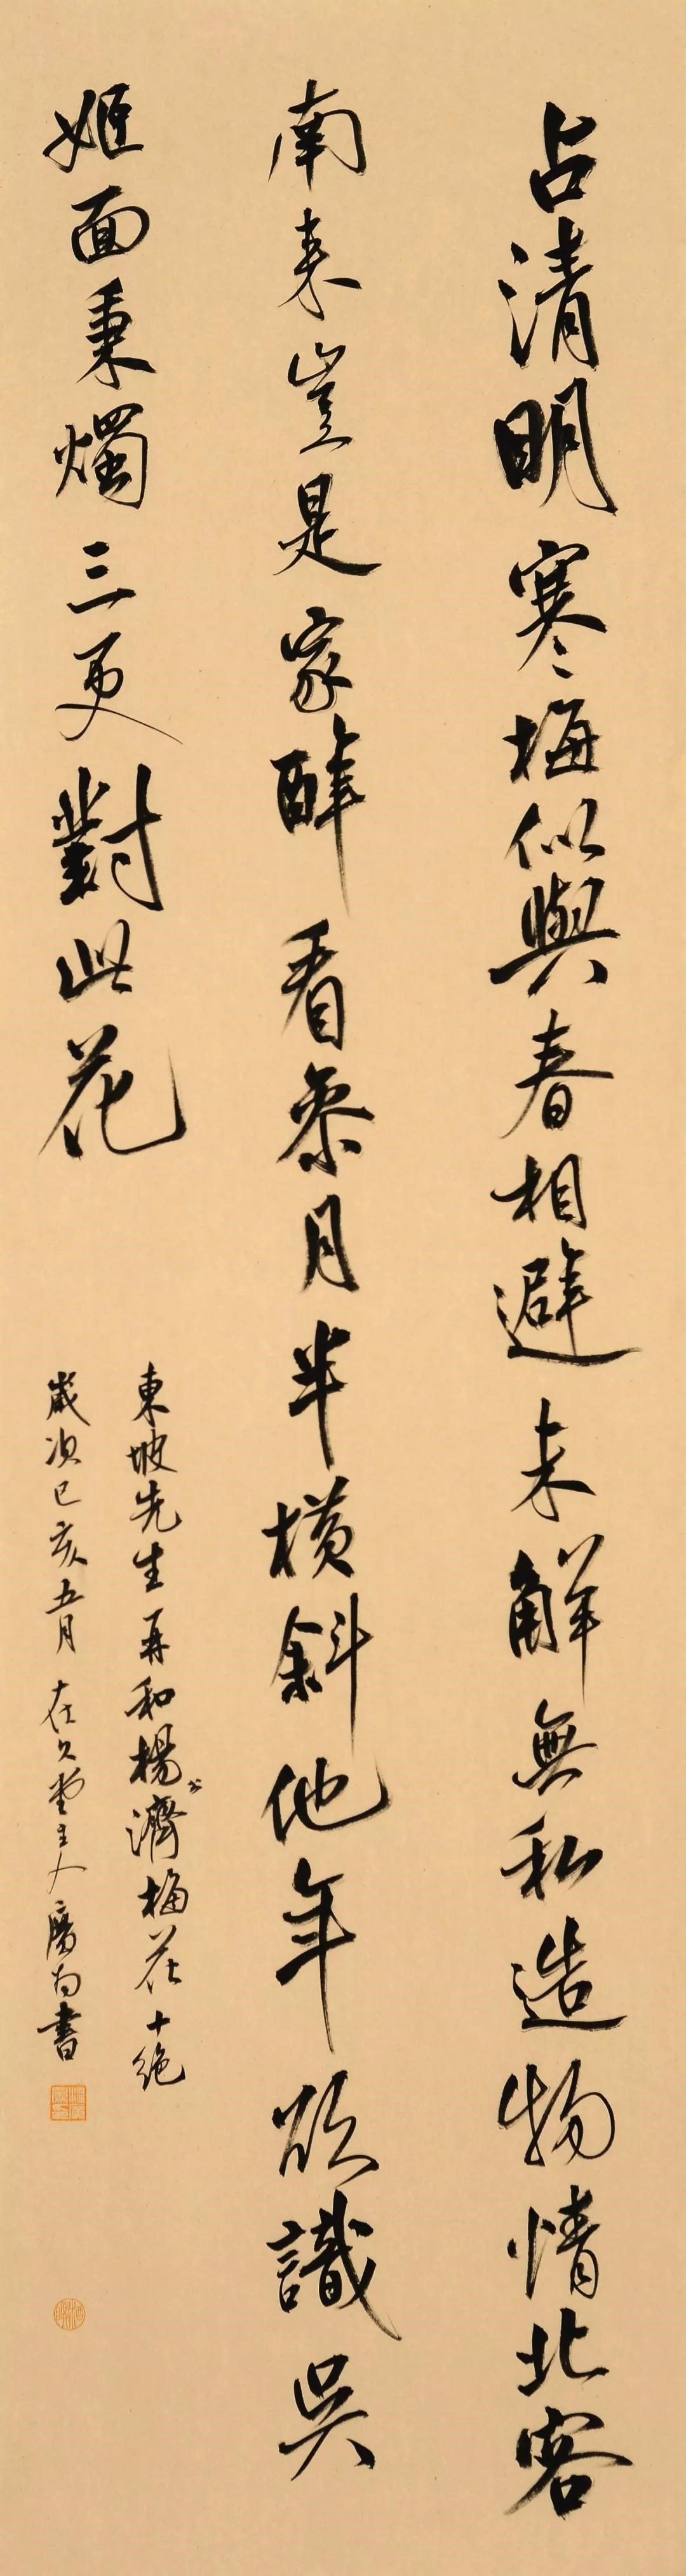 占清明寒梅似與春相避未解無私造物情北客
南来豈是家醉看参月半横斜他年欲識吳
姬面秉燭三更對此花
東坡先生再和楊公濟梅花十绝
歲次己亥五月在久堂主人廣為書